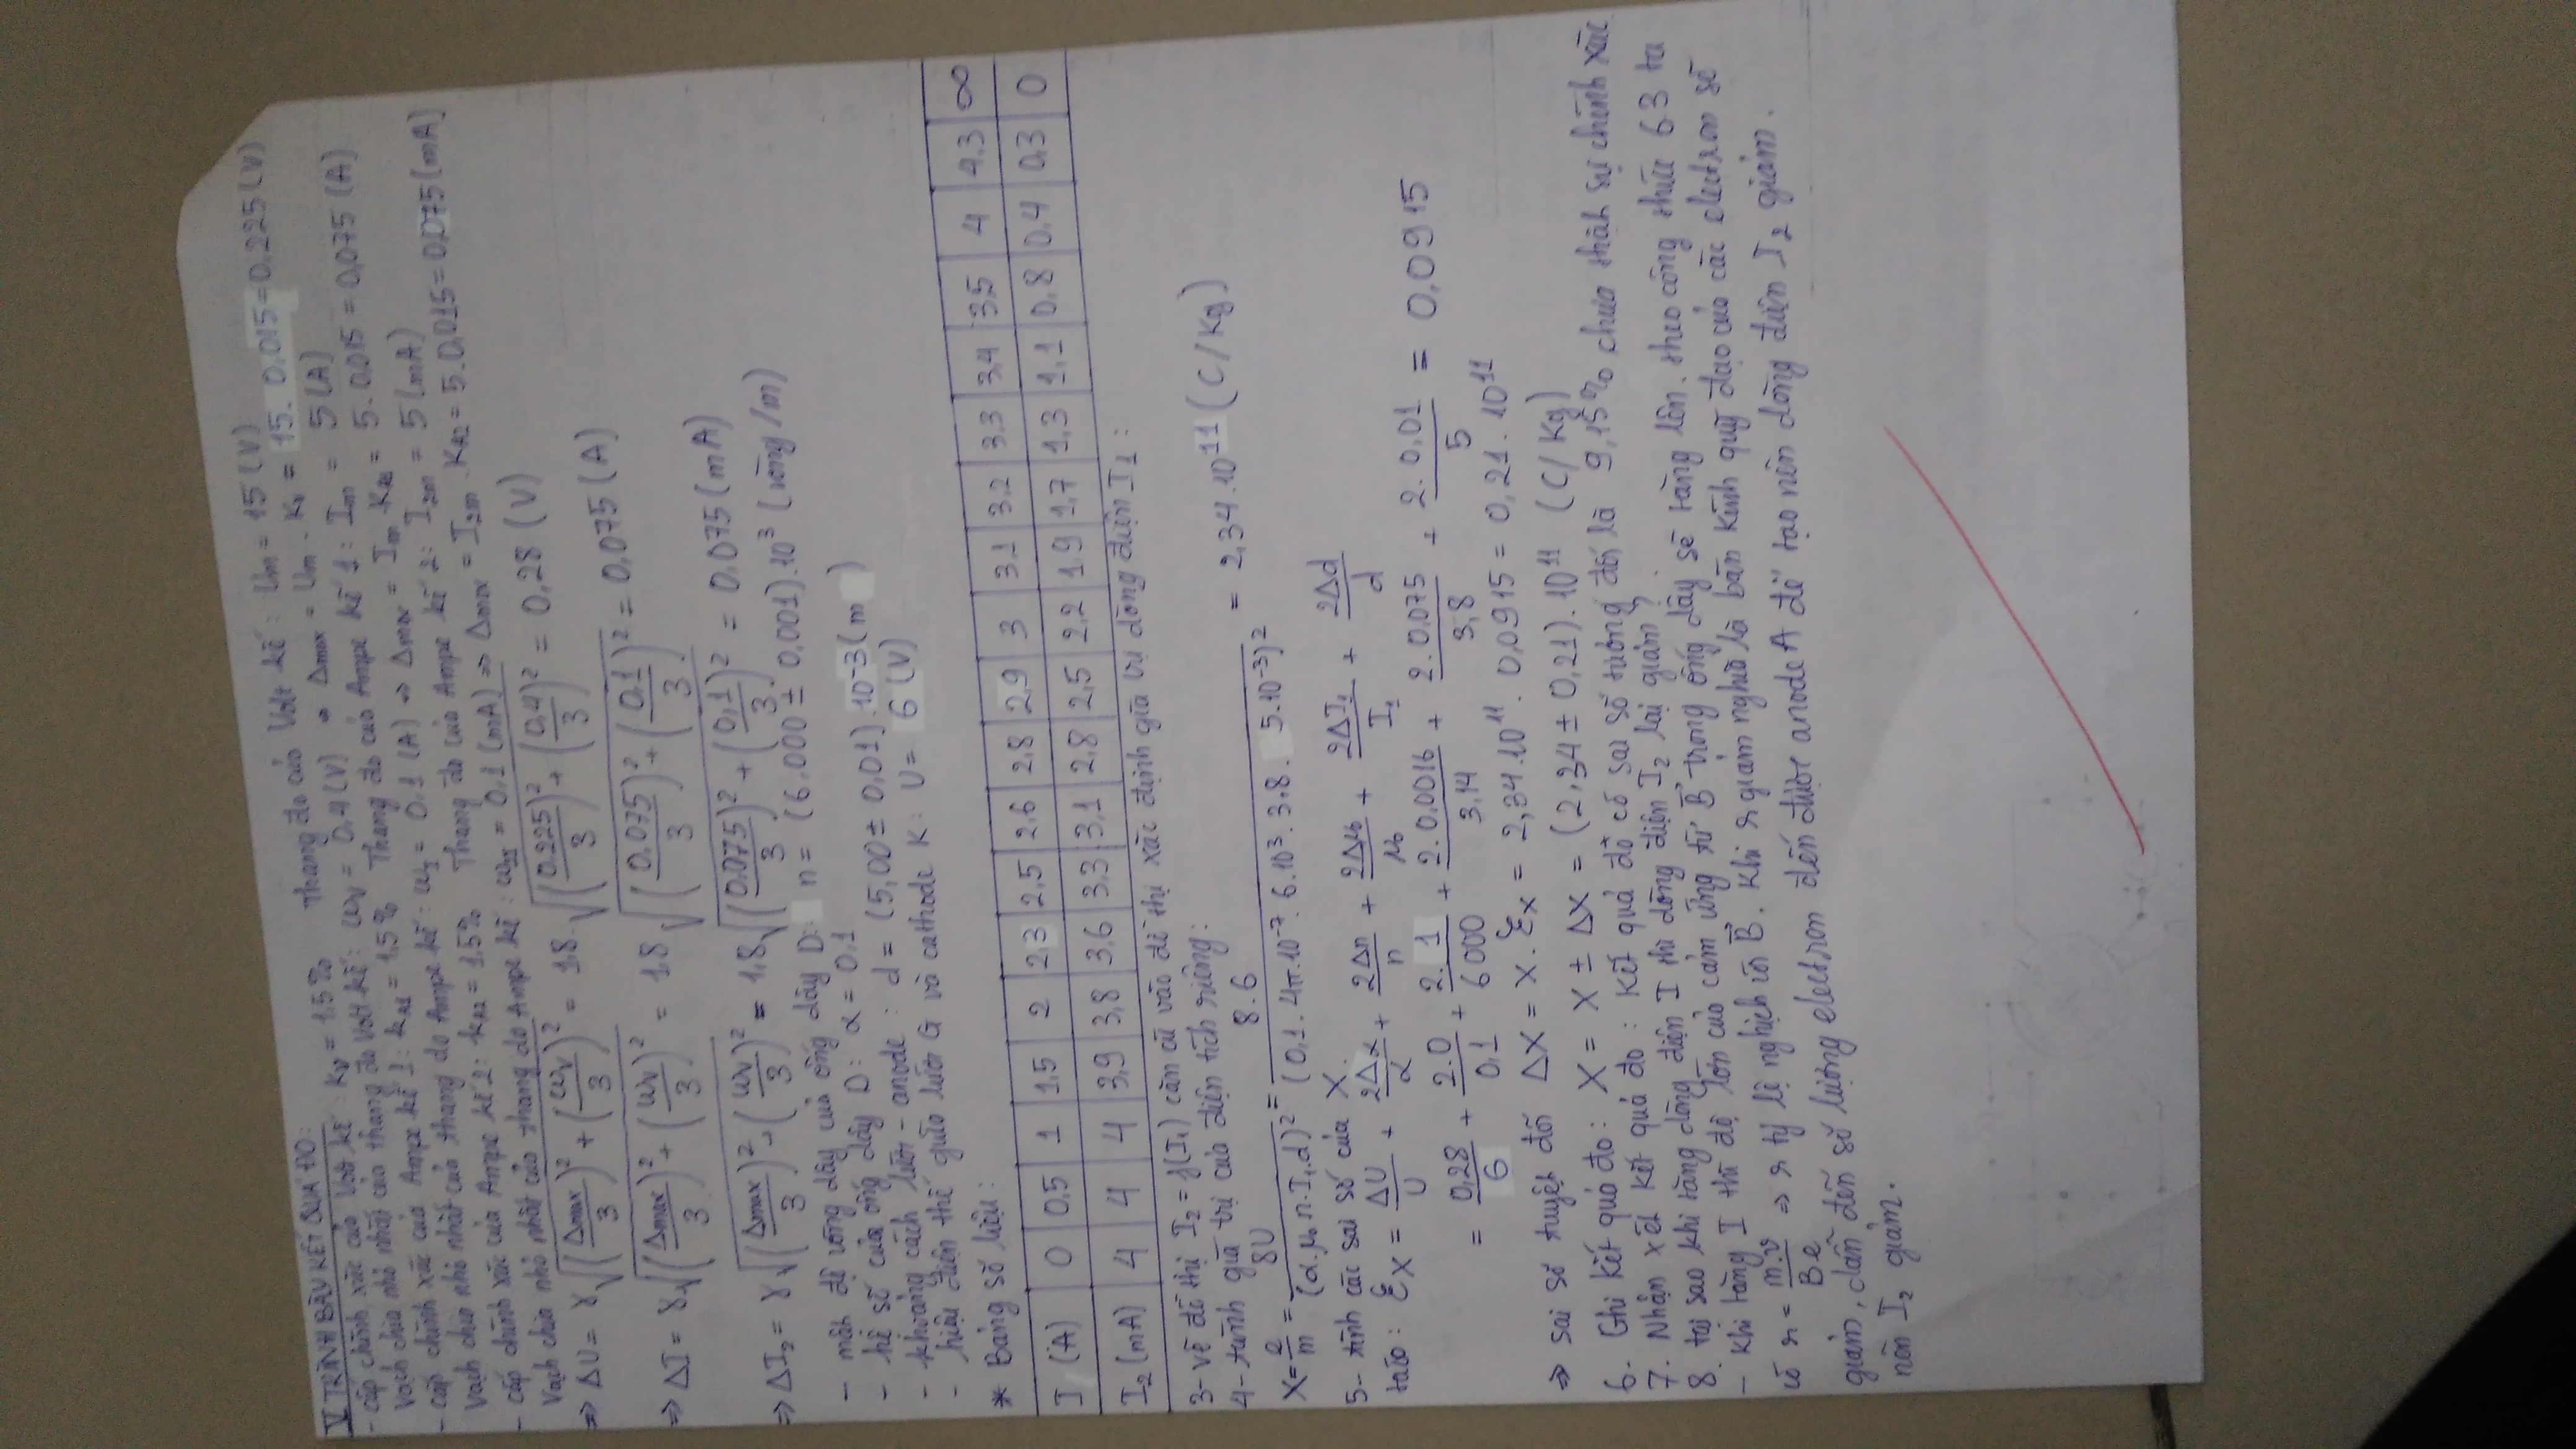 V TRÌNH BÀY KẾT QUẢ ĐO:
- cấp chính xác của Volt kế: kV = 1,5% Thang đo của Volt kế: Um = 15 (V)
Vạch chia nhỏ nhất của thang đo Volt kế: ωV = 0,4 (V) ⇒ Δmax = Um . KV = 15. 0,015 = 0,225 (V)
- cấp chính xác của Ampe kế 1: kA1 = 1,5% Thang đo của Ampe kế 1: Im = 5 (A)
Vạch chia nhỏ nhất của thang đo Ampe kế: ωI = 0,1 (A) ⇒ Δmax = Im . KA1 = 5. 0,015 = 0,075 (A)
- cấp chính xác của Ampe kế 2: kA2 = 1,5% Thang đo của Ampe kế 2: I2m = 5 (mA)
Vạch chia nhỏ nhất của thang đo Ampe kế: ω2I = 0,1 (mA) ⇒ Δmax = I2m . KA2 = 5. 0,015 = 0,075 (mA)
⇒ ΔU = γ √((Δmax/3)² + (ωV/3)²) = 1,8. √((0,225/3)² + (0,4/3)²) = 0,28 (V)
⇒ ΔI = γ √((Δmax/3)² + (ωV/3)²) = 1,8 √((0,075/3)² + (0,1/3)²) = 0,075 (A)
⇒ ΔI₂ = γ √((Δmax/3)² + (ωV/3)²) = 1,8 √((0,075/3)² + (0,1/3)²) = 0,075 (mA)
- mật độ vòng dây của ống dây D: n = (6,000 ± 0,001).10³ (vòng/m)
- hệ số của ống dây D: α = 0,1
- khoảng cách lưới - anode: d = (5,00 ± 0,01).10⁻³ (m)
- hiệu điện thế giữa lưới G và cathode K: U = 6 (V)
* Bảng số liệu:
I (A) 0 0,5 1 1,5 2 2,3 2,5 2,6 2,8 2,9 3 3,1 3,2 3,3 3,4 3,5 4 4,3 ∞
I₂ (mA) 4 4 4 3,9 3,8 3,6 3,3 3,1 2,8 2,5 2,2 1,9 1,7 1,3 1,1 0,8 0,4 0,3 0
3- vẽ đồ thị I₂ = f(I₁) căn cứ vào đồ thị xác định giá trị dòng điện I₁:
4- tính giá trị của điện tích riêng:
X = e/m = 8U/(α.μ₀.n.I₁.d)² = 8.6/(0,1. 4π.10⁻⁷. 6.10³. 3,8. 5.10⁻³)² = 2,34.10¹¹ (C/Kg)
5- tính các sai số của X.
ta có: εX = ΔU/U + 2Δα/α + 2Δn/n + 2Δμ₀/μ₀ + 2ΔI₁/I₁ + 2Δd/d
= 0,28/6 + 2.0/0,1 + 2.1/6000 + 2.0,0016/3,14 + 2.0,075/3,8 + 2.0,01/5 = 0,0915
⇒ sai số tuyệt đối ΔX = X. εX = 2,34.10¹¹. 0,0915 = 0,21.10¹¹
6. Ghi kết quả đo: X = X ± ΔX = (2,34 ± 0,21).10¹¹ (C/Kg)
7. Nhận xét kết quả đo: Kết quả đo có sai số tương đối là 9,15% chưa thật sự chính xác.
8. tại sao khi tăng dòng điện I thì dòng điện I₂ lại giảm?
- Khi tăng I thì độ lớn của cảm ứng từ B⃗ trong ống dây sẽ tăng lên. theo công thức 6.3 ta
có r = m.v/Be ⇒ r tỷ lệ nghịch với B⃗. Khi r giảm nghĩa là bán kính quỹ đạo của các electron sẽ
giảm, dẫn đến số lượng electron đến được anode A để tạo nên dòng điện I₂ giảm.
nên I₂ giảm.